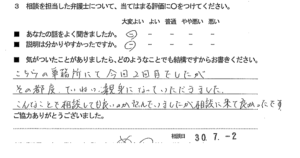 3 相談を担当した弁護士について、当てはまる評価に○をつけてください。
大変よい よい 普通 やや悪い 悪い
■ あなたの話をよく聞きましたか。
■ 説明は分かりやすかったですか。
■ 気がついたことがありましたら、どのようなことでも結構ですからお書きください。
こちらの事務所にて今回2回目でしたが
その都度、ていねい、親身になっていただきました。
こんなこと相談しても良いのか悩んでいましたが相談に来て良かったです
ご協力ありがとうございました。
30.7.-2